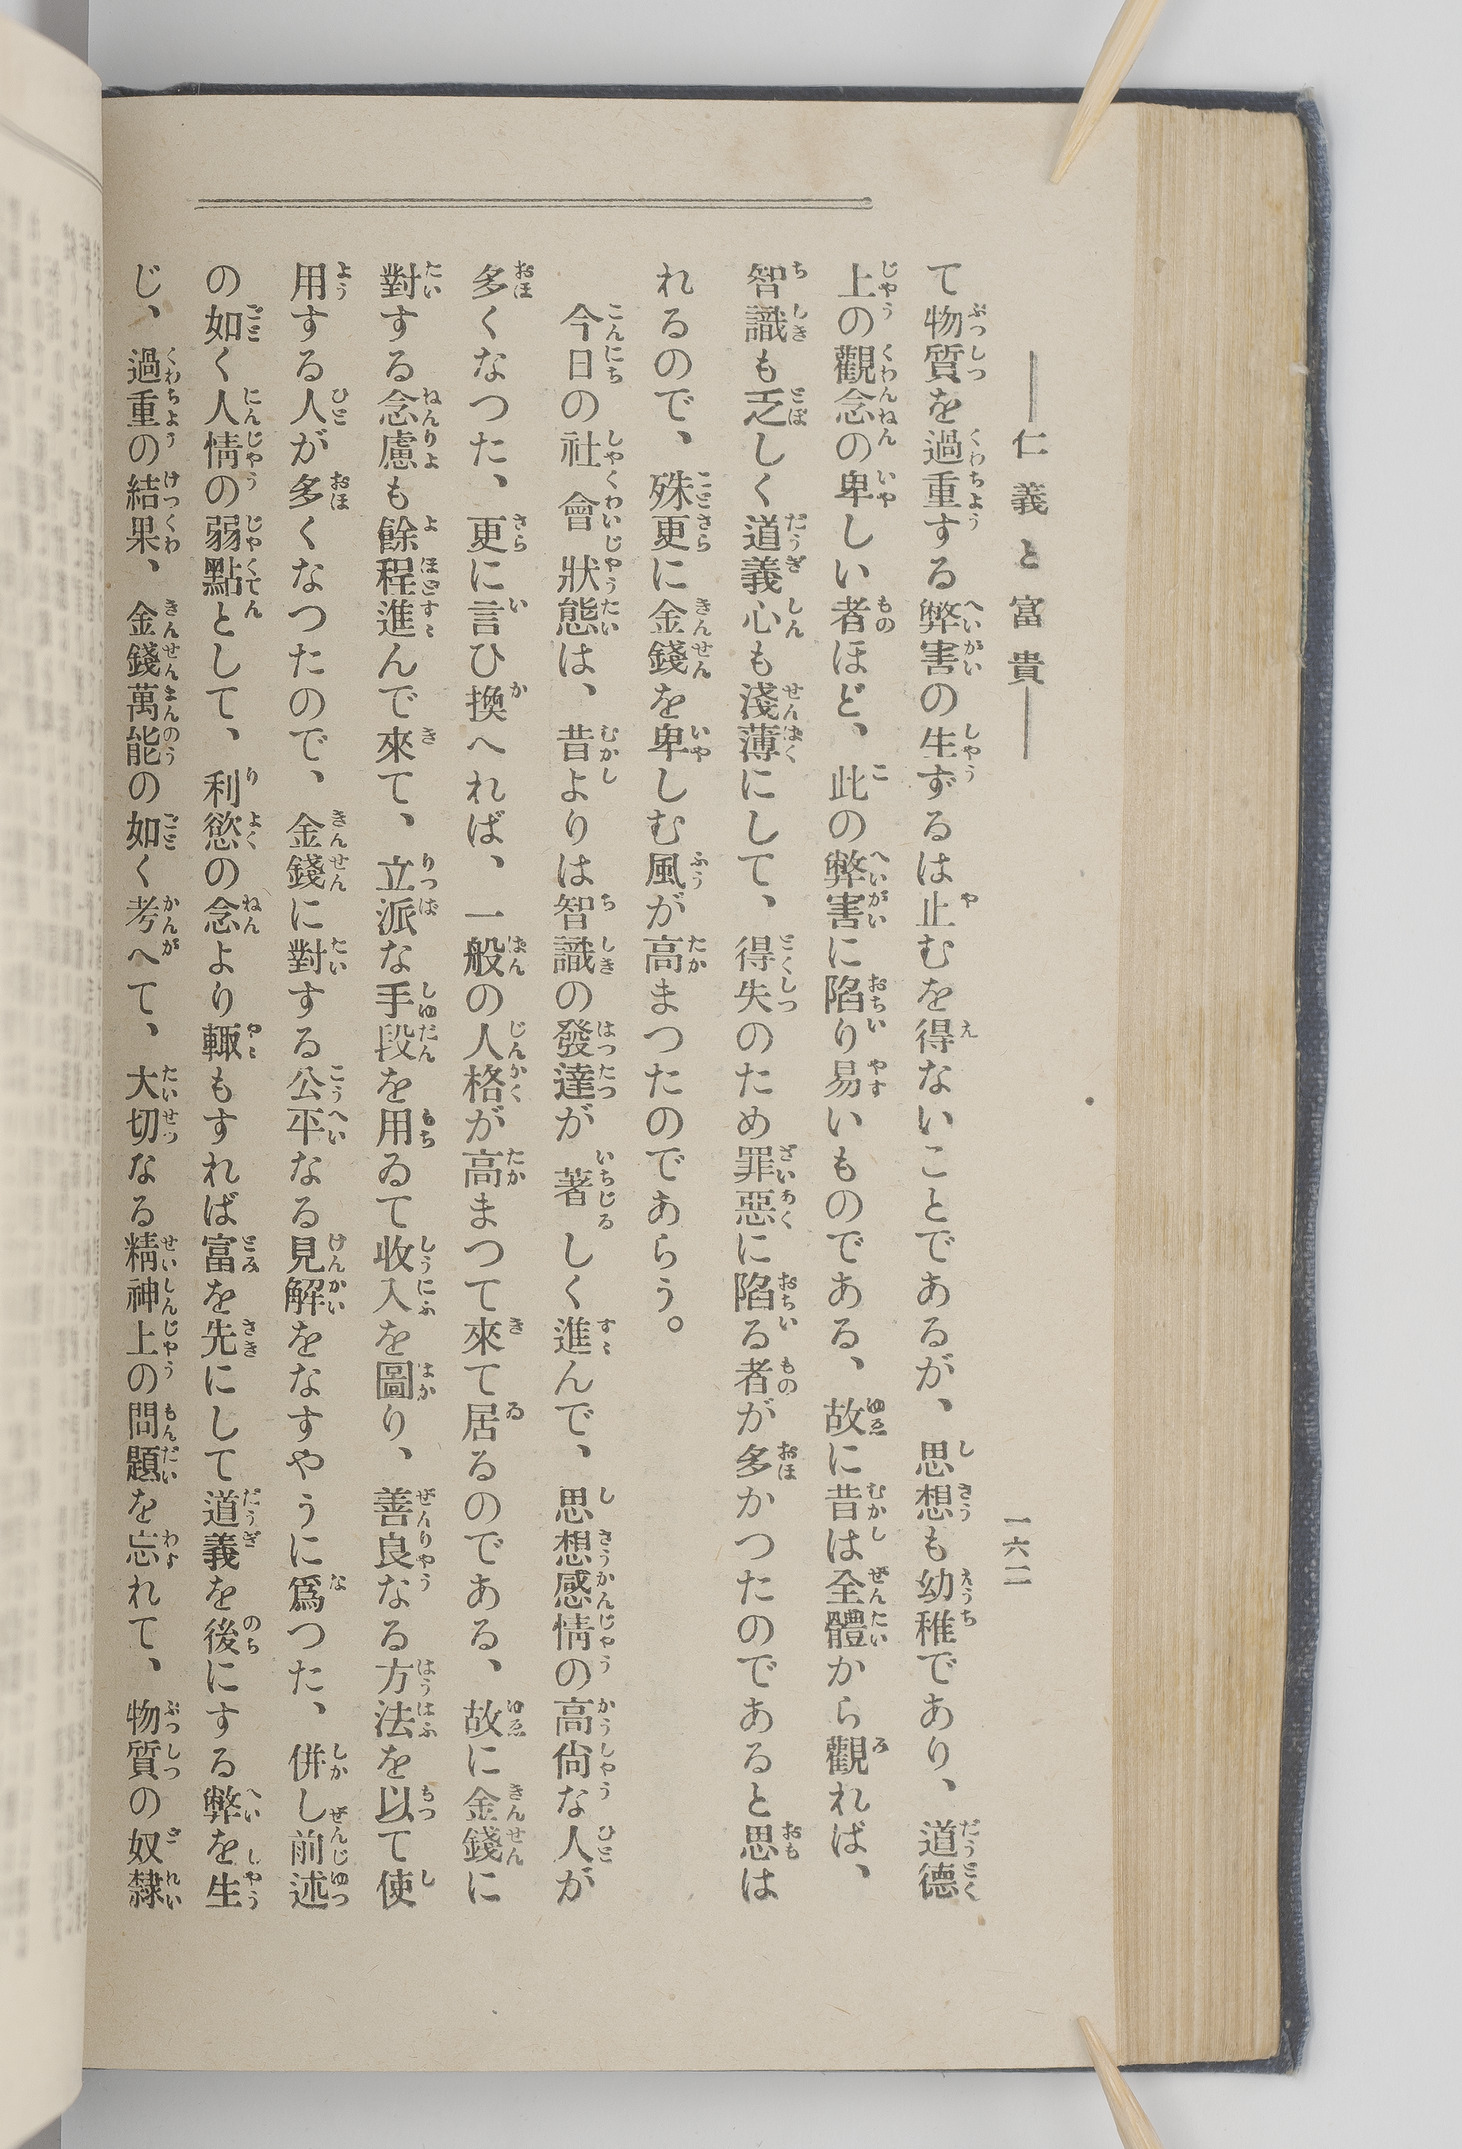 仁義と富貴
一六二
て物質を過重する弊害の生ずるは止むを得ないことであるが、思想も幼稚であり、道德
上の觀念の卑しい者ほど、此の弊害に陷り易いものである、故に昔は全體から觀れば、
智識も乏しく道義心も淺薄にして、得失のため罪惡に陷る者が多かつたのであると思は
れるので、殊更に金錢を卑しむ風が高まつたのであらう。
今日の社會狀態は、昔よりは智識の發達が著しく進んで、思想感情の高尙な人が
多くなつた、更に言ひ換へれば、一般の人格が高まつて來て居るのである、故に金錢に
對する念慮も餘程進んで來て、立派な手段を用ゐて收入を圖り、善良なる方法を以て使
用する人が多くなつたので、金錢に對する公平なる見解をなすやうに爲つた、併し前述
の如く人情の弱點として、利慾の念より輙もすれば富を先にして道義を後にする弊を生
じ、過重の結果、金錢萬能の如く考へて、大切なる精神上の問題を忘れて、物質の奴隸